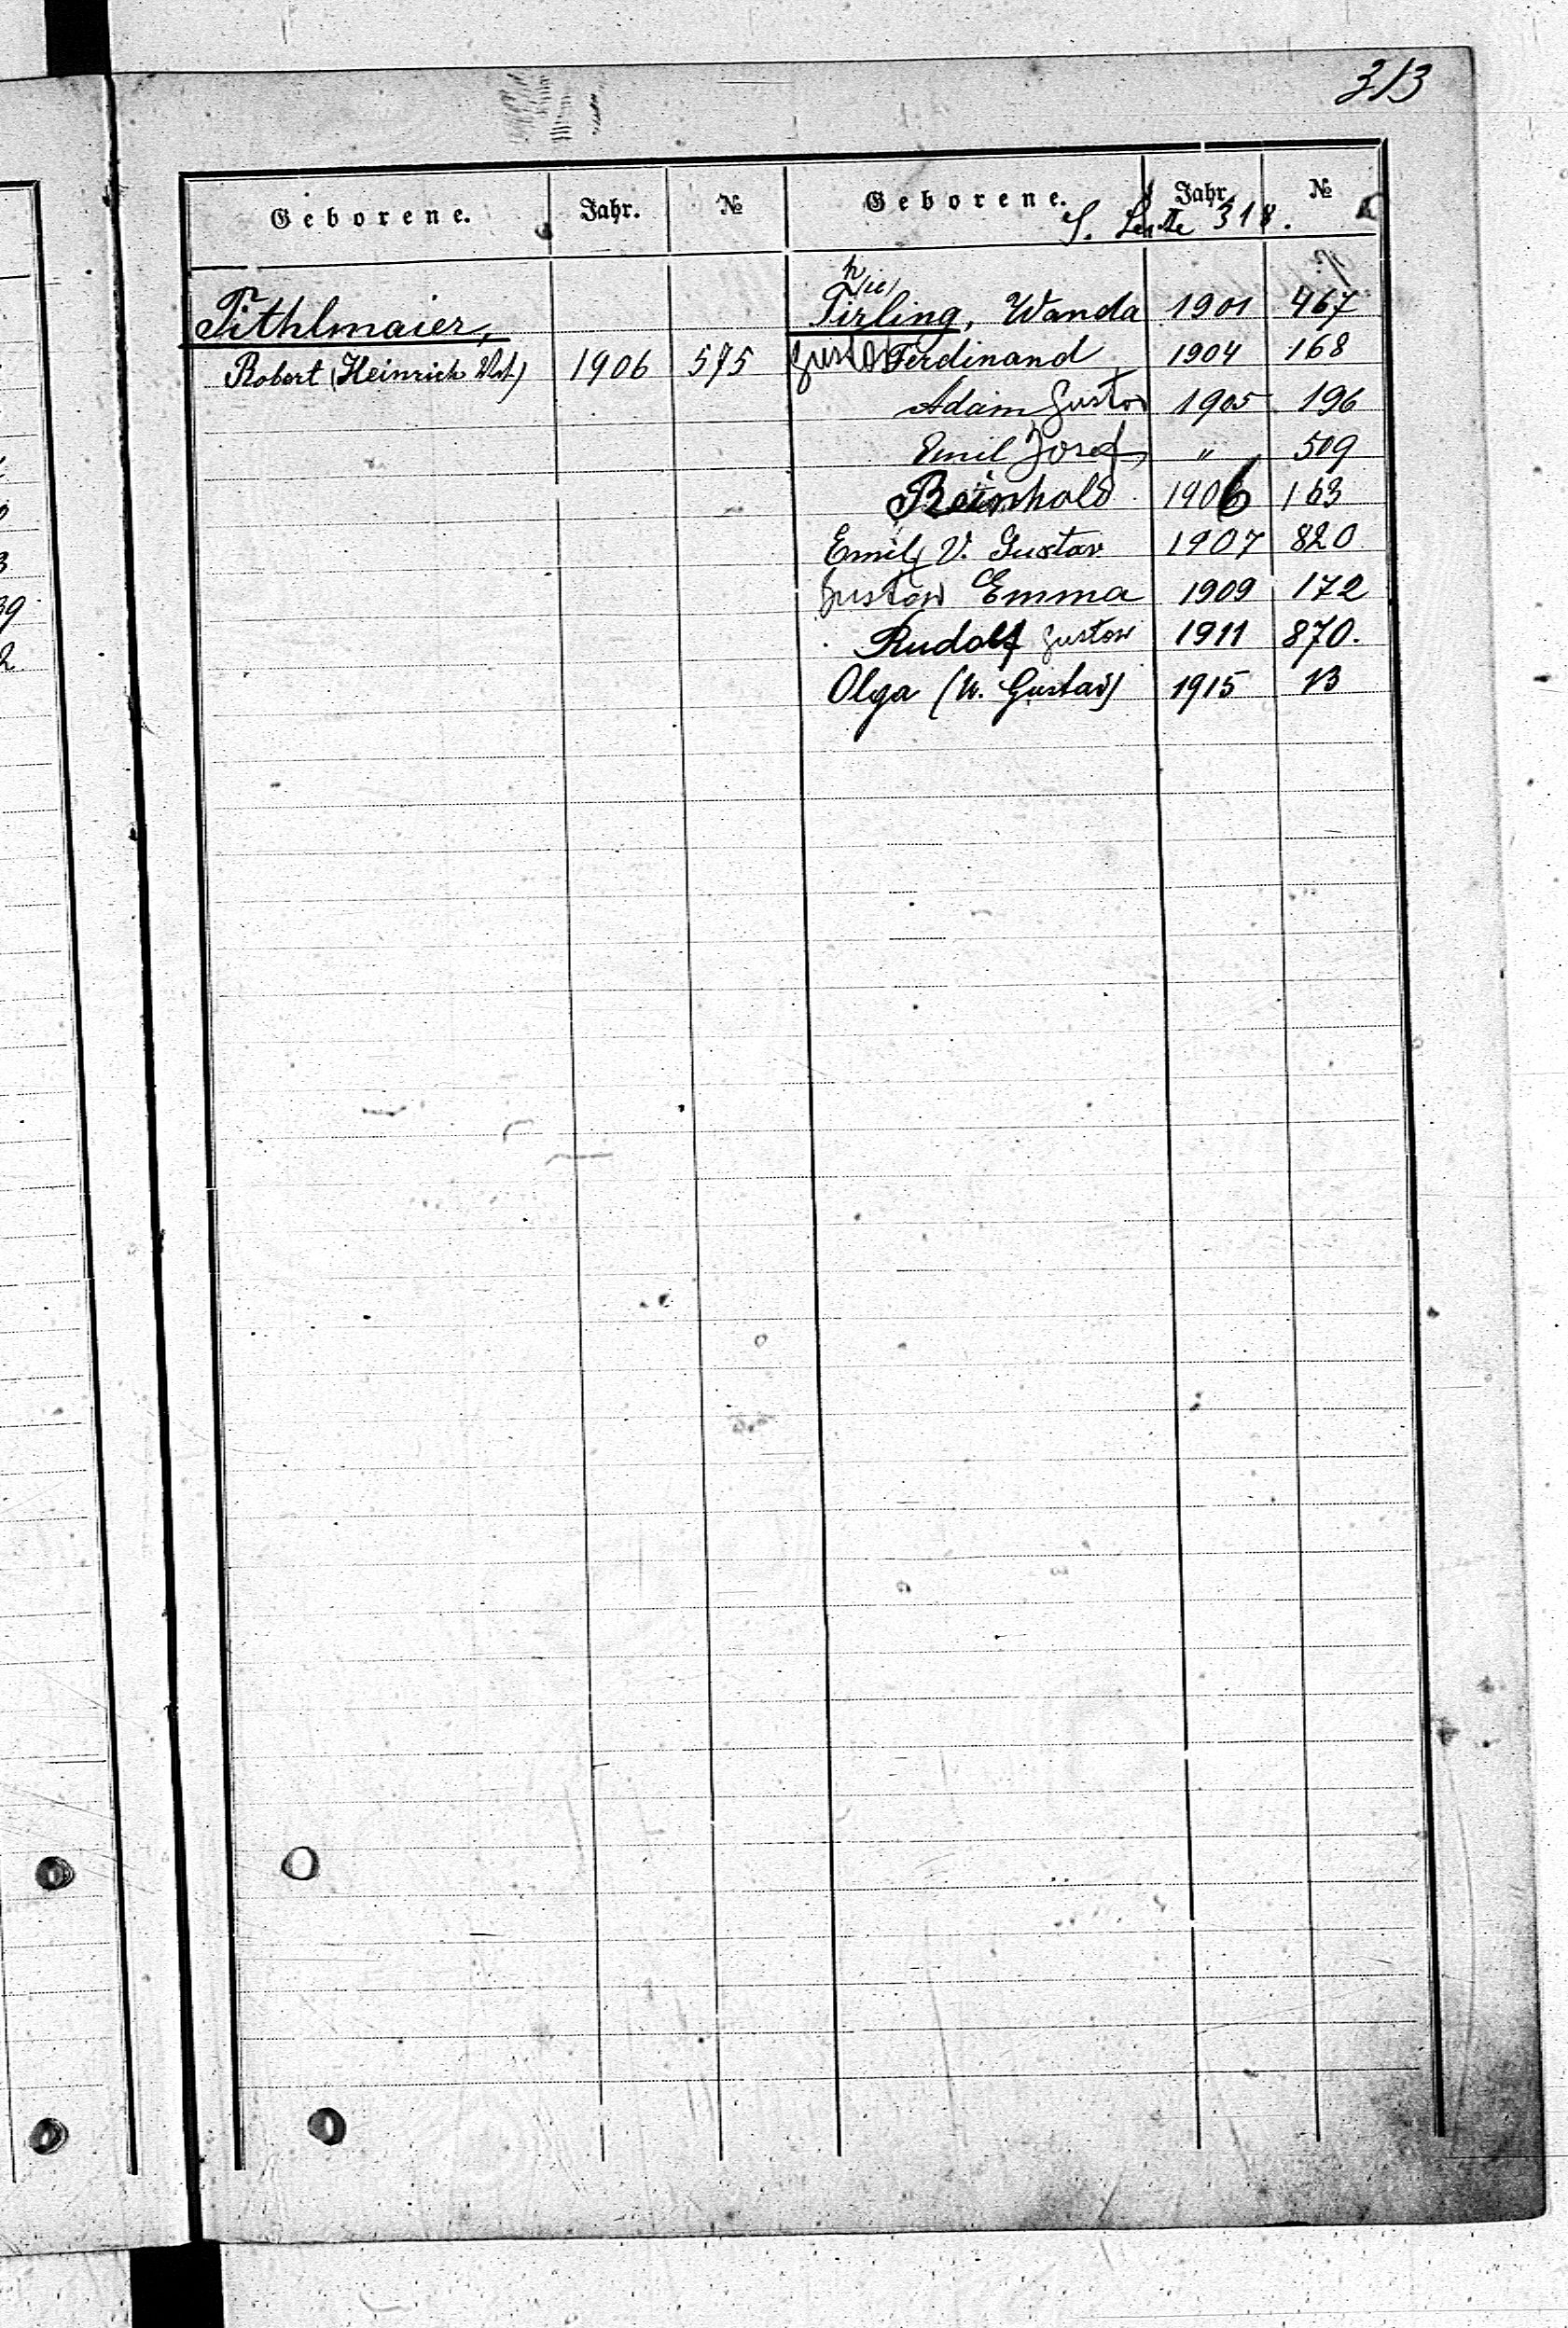 313
Geborene. Jahr. № Geborene. Jahr. №
S. Seite 318.
Tithlmaier,
Robert (Heinrich Vat.) 1906 575
h (ie)
Tirling, Wanda 1901 467
Gustav Ferdinand 1904 168
Adam Gustav 1905 196
Emil Josef 〃 509
Reinhold 1906 163
Emil V. Gustav 1907 820
Gustav Emma 1909 172
Rudolf Gustav 1911 870.
Olga (V. Gustav) 1915 13